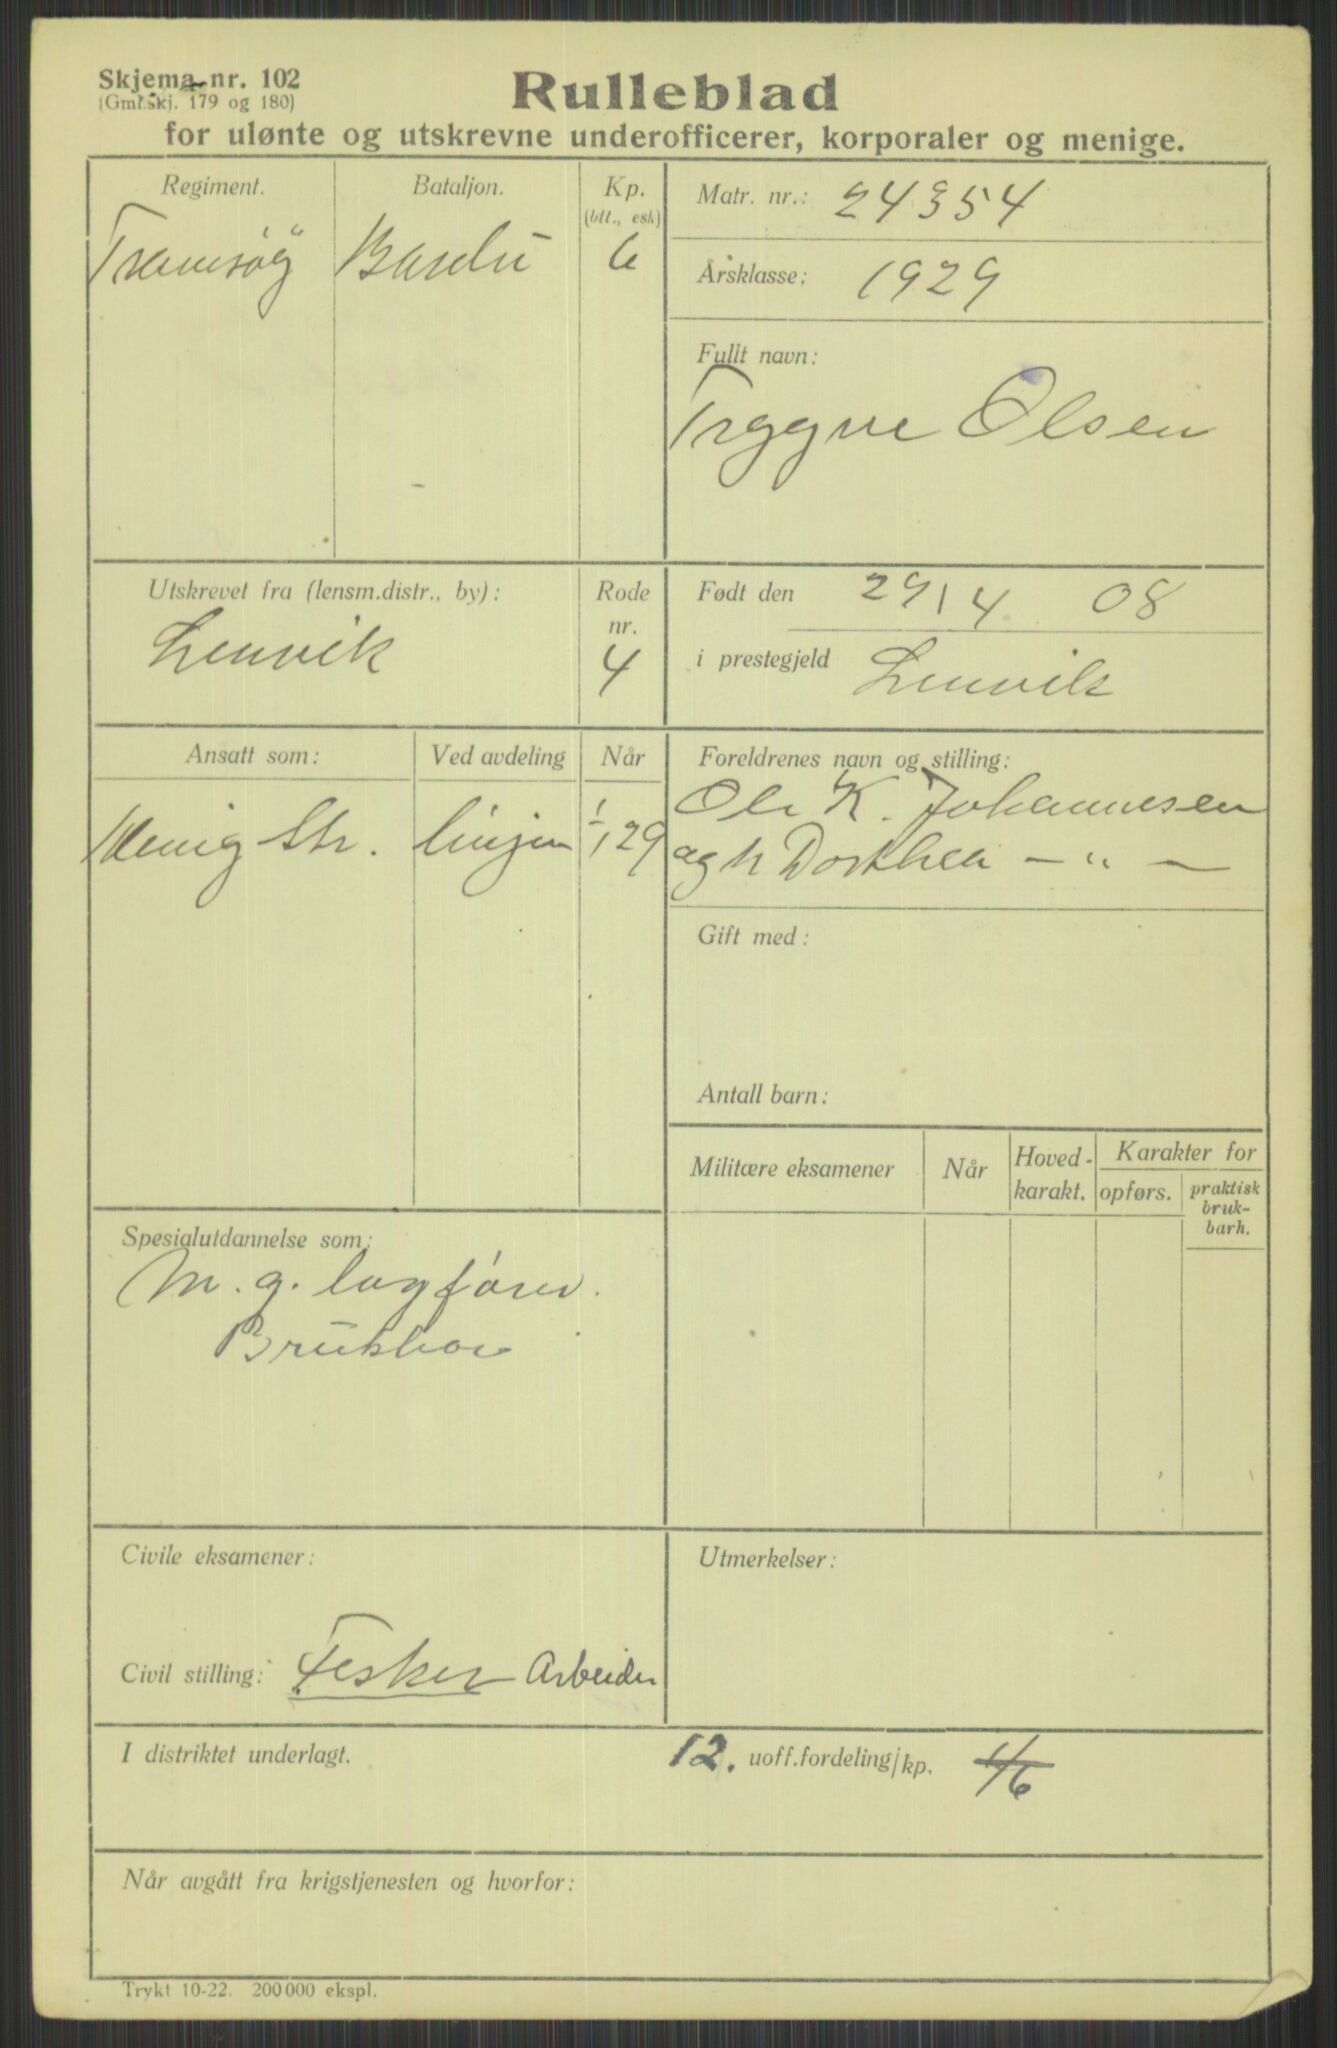 Skjema nr. 102
(Gml.skj. 179 og 180)
Rulleblad
for ulønte og utskrevne underofficerer, korporaler og menige.
Regiment. Bataljon. Kp. (btt., esk)
Bardu 6
Matr. nr.: 24354
Årsklasse: 1929
Fullt navn:
Tryggve Olsen
Utskrevet fra (lensm.distr., by): Rode nr.
Lenvik 4
Født den 29/4 08
i prestegjeld Lenvik
Ansatt som: Ved avdeling Når
Menig Str. linjen 1/1 29
Foreldrenes navn og stilling:
Ole K. Johannesen
og h Dorthea — „ —
Gift med:
Antall barn:
Militære eksamener Når Hoved-karakt. Karakter for
opførs. praktisk bruk-barh.
Spesialutdannelse som:
M. g. lagfører.
Brukbar
Civile eksamener:
Civil stilling: Fisker Arbeider
Utmerkelser:
I distriktet underlagt. 12. uoff.fordeling/kp.
Når avgått fra krigstjenesten og hvorfor:
Trykt 10-22. 200 000 ekspl.